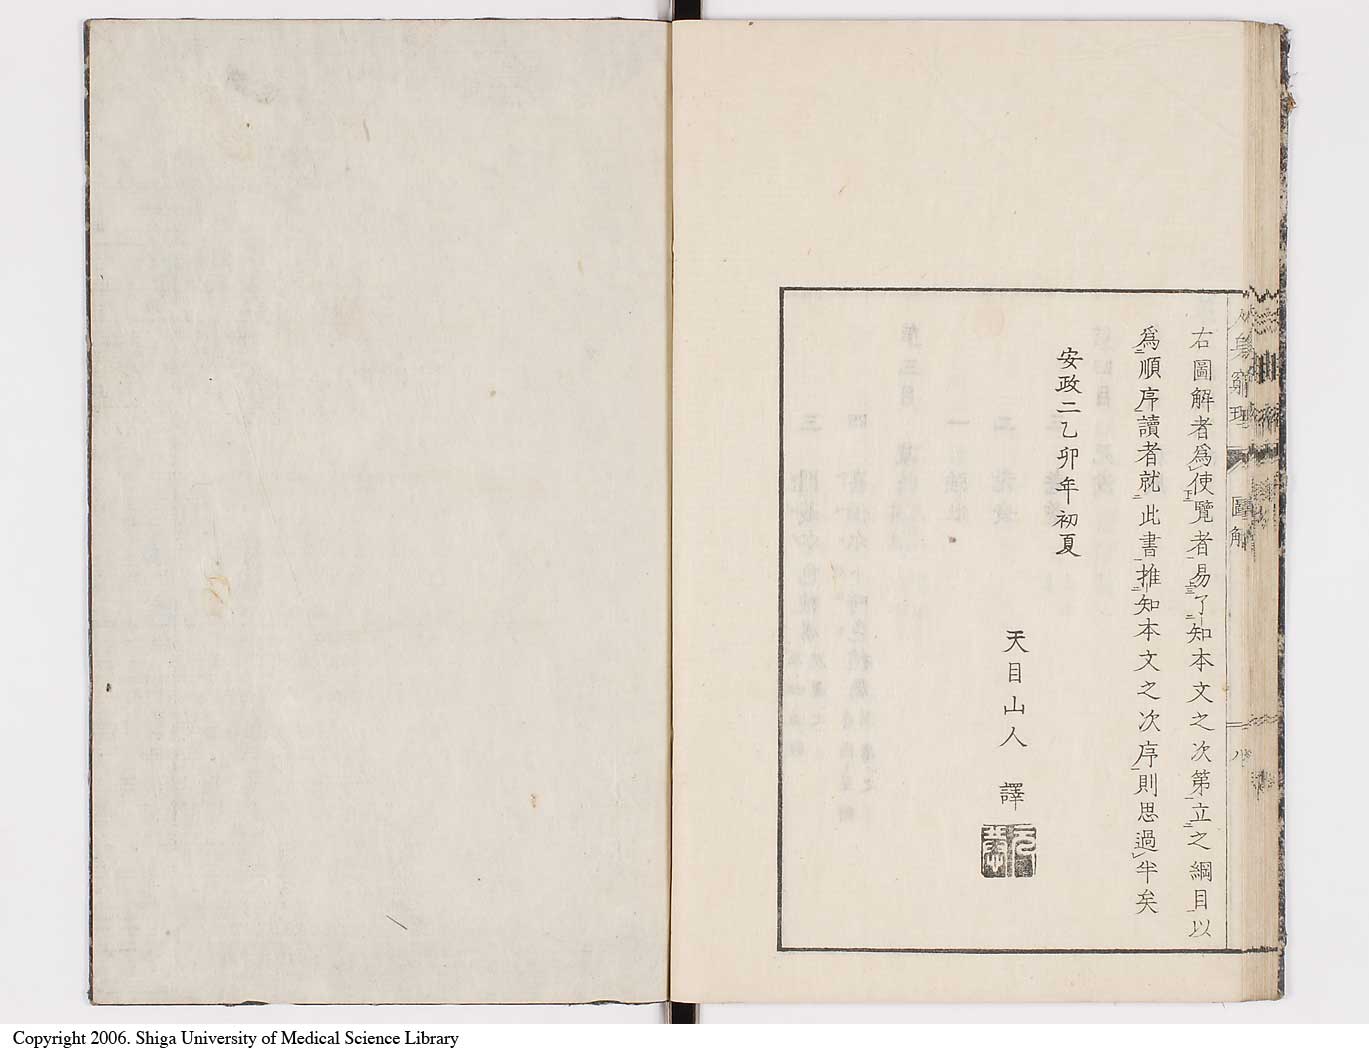 右圖解者爲使覽者易了知本文之次第立之綱目以
爲順序讀者就此書推知本文之次序則思過半矣
安政二乙卯年初夏
天目山人 譯
人身窮理 圖解 八
Copyright 2006. Shiga University of Medical Science Library